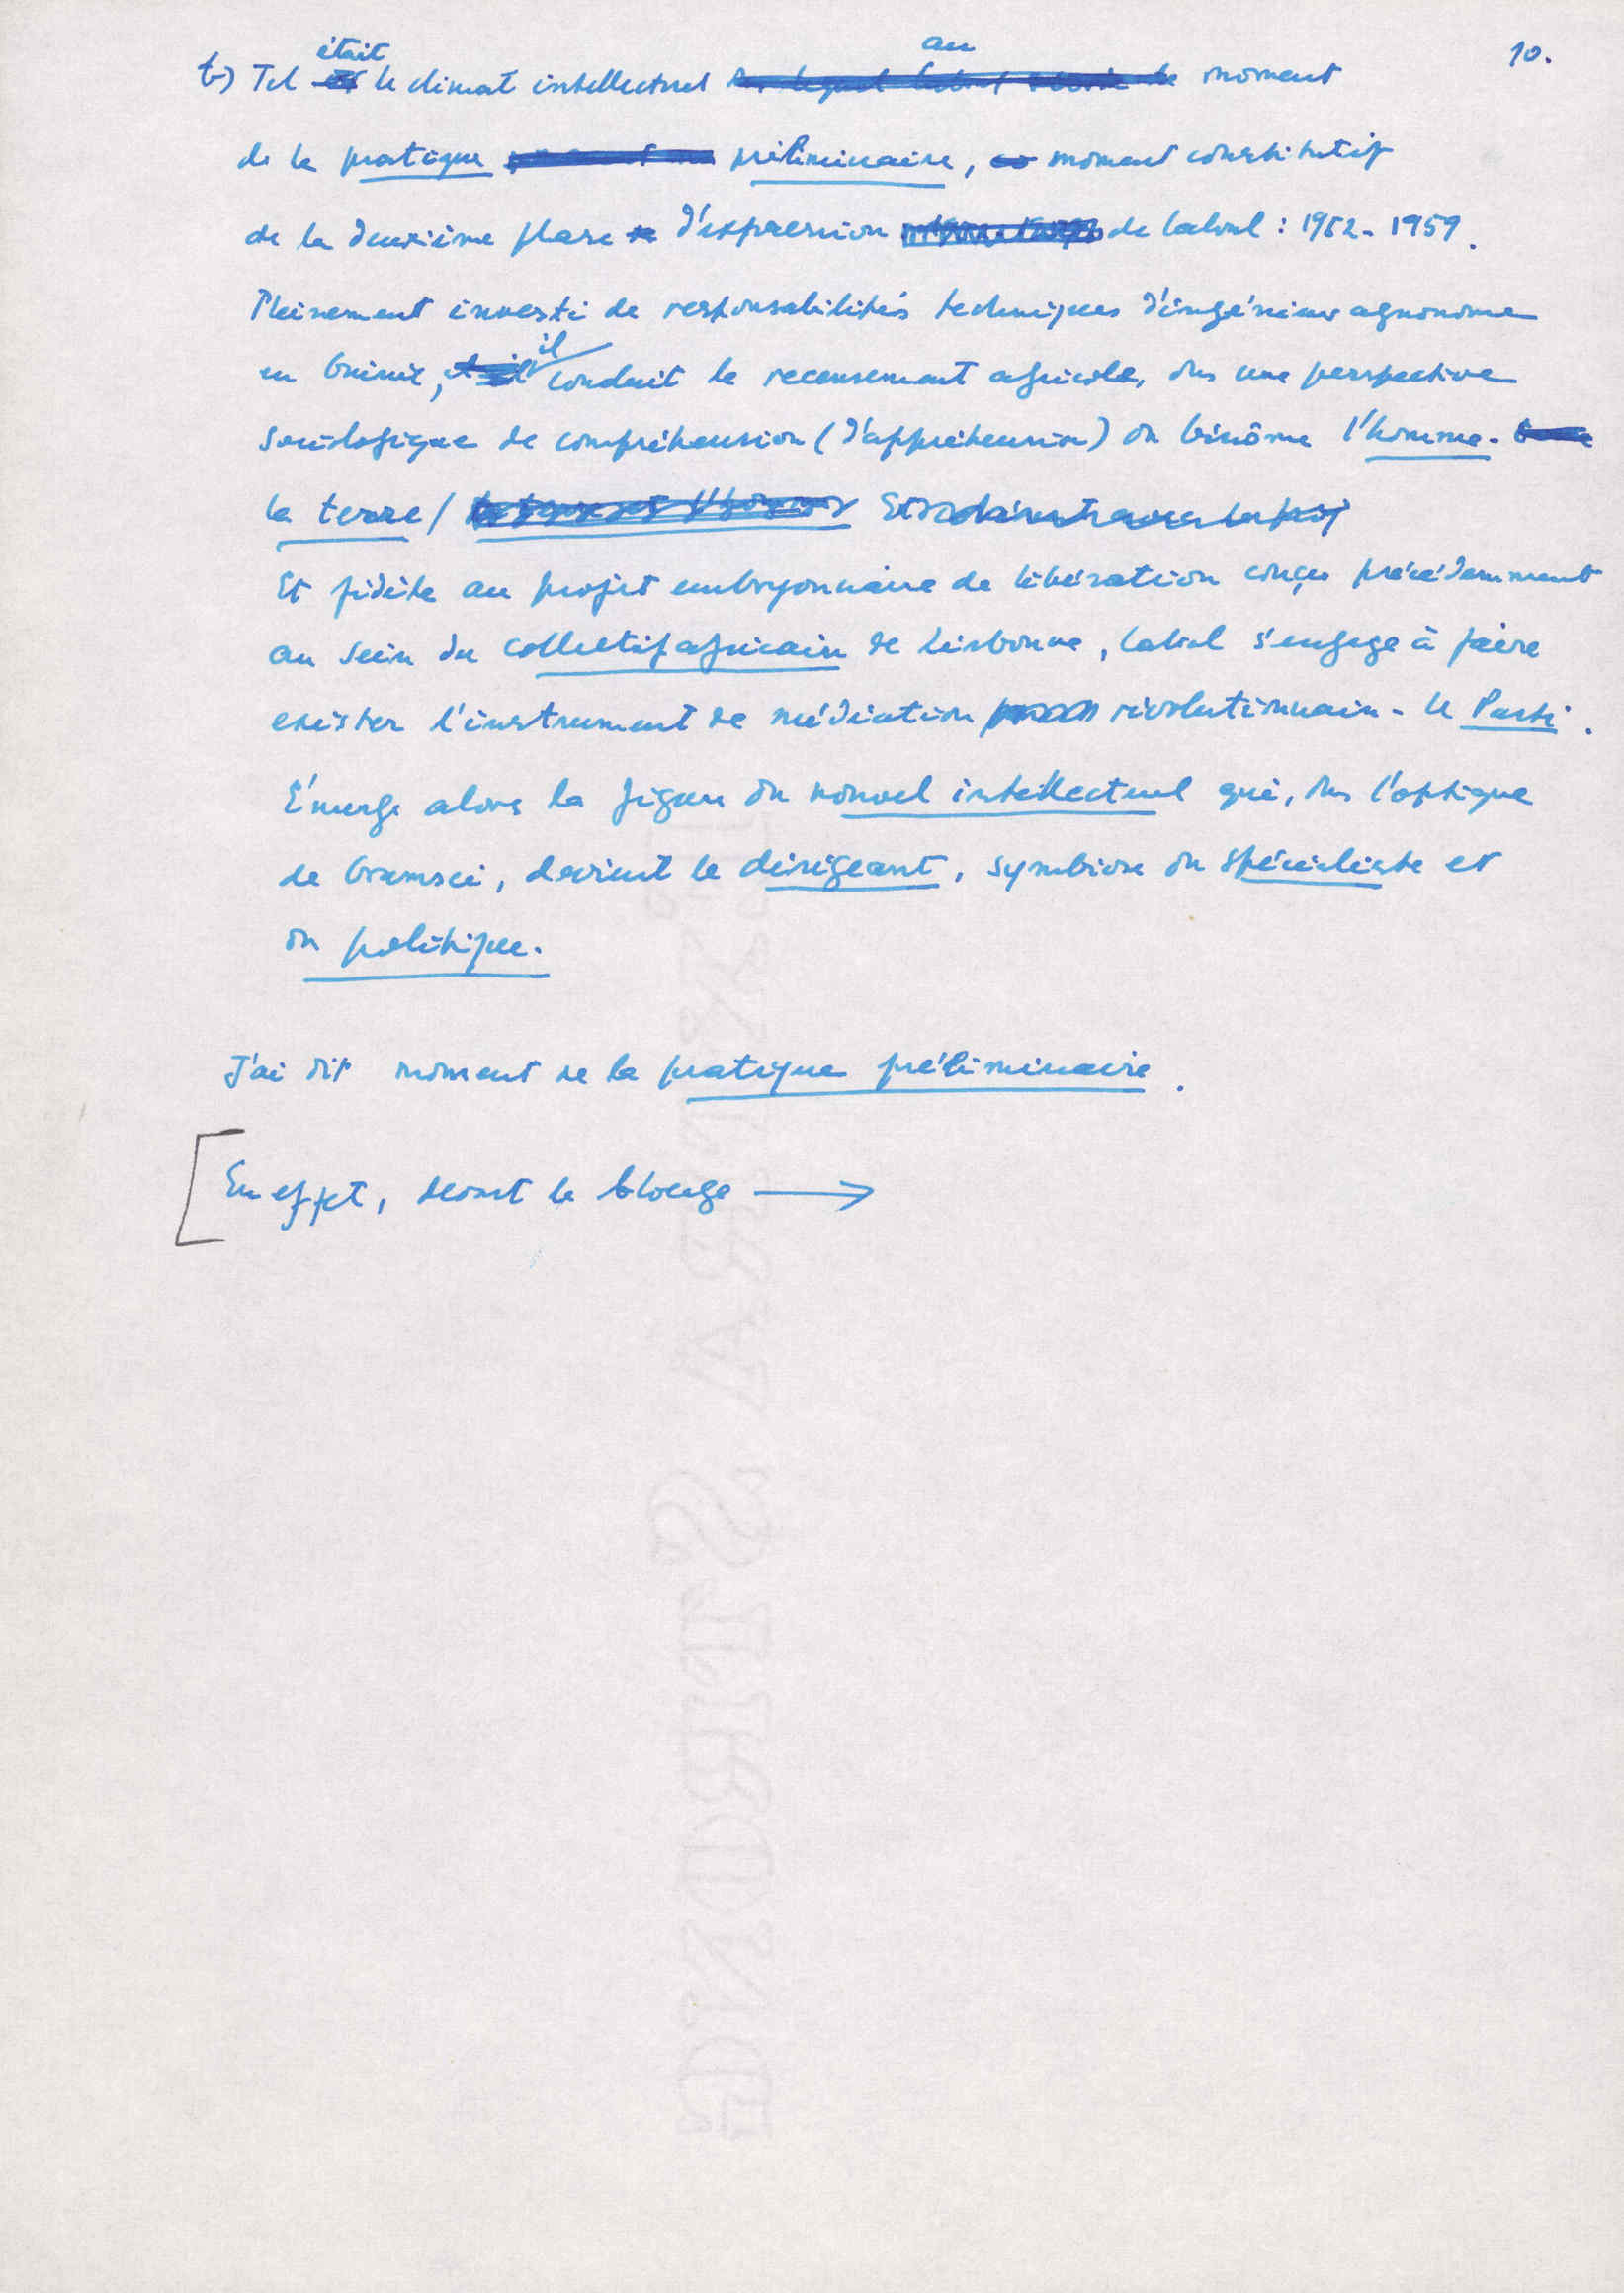 10.
était au
b) Tel le climat intellectuel moment
de la pratique préliminaire, moment constitutif
de la deuxième phase d'expression de Cabral : 1952-1959.
Pleinement investi de responsabilités techniques d'ingénieur agronome
en Guinée, il conduit le recensement agricole, ds une perspective
sociologique de compréhension (d'appréhension) du binôme l'homme-
la terre/
Et fidèle au projet embryonnaire de libération conçu précédemment
au sein du collectif africain de Lisbonne, Cabral s'engage à faire
exister l'instrument de médiation révolutionnaire - le Parti.
Émerge alors la figure du nouvel intellectuel qui, ds l'optique
de Gramsci, devient le dirigeant, symbiose du spécialiste et
du politique.
J'ai dit moment de la pratique préliminaire.
[En effet, devant le blocage →
BRING